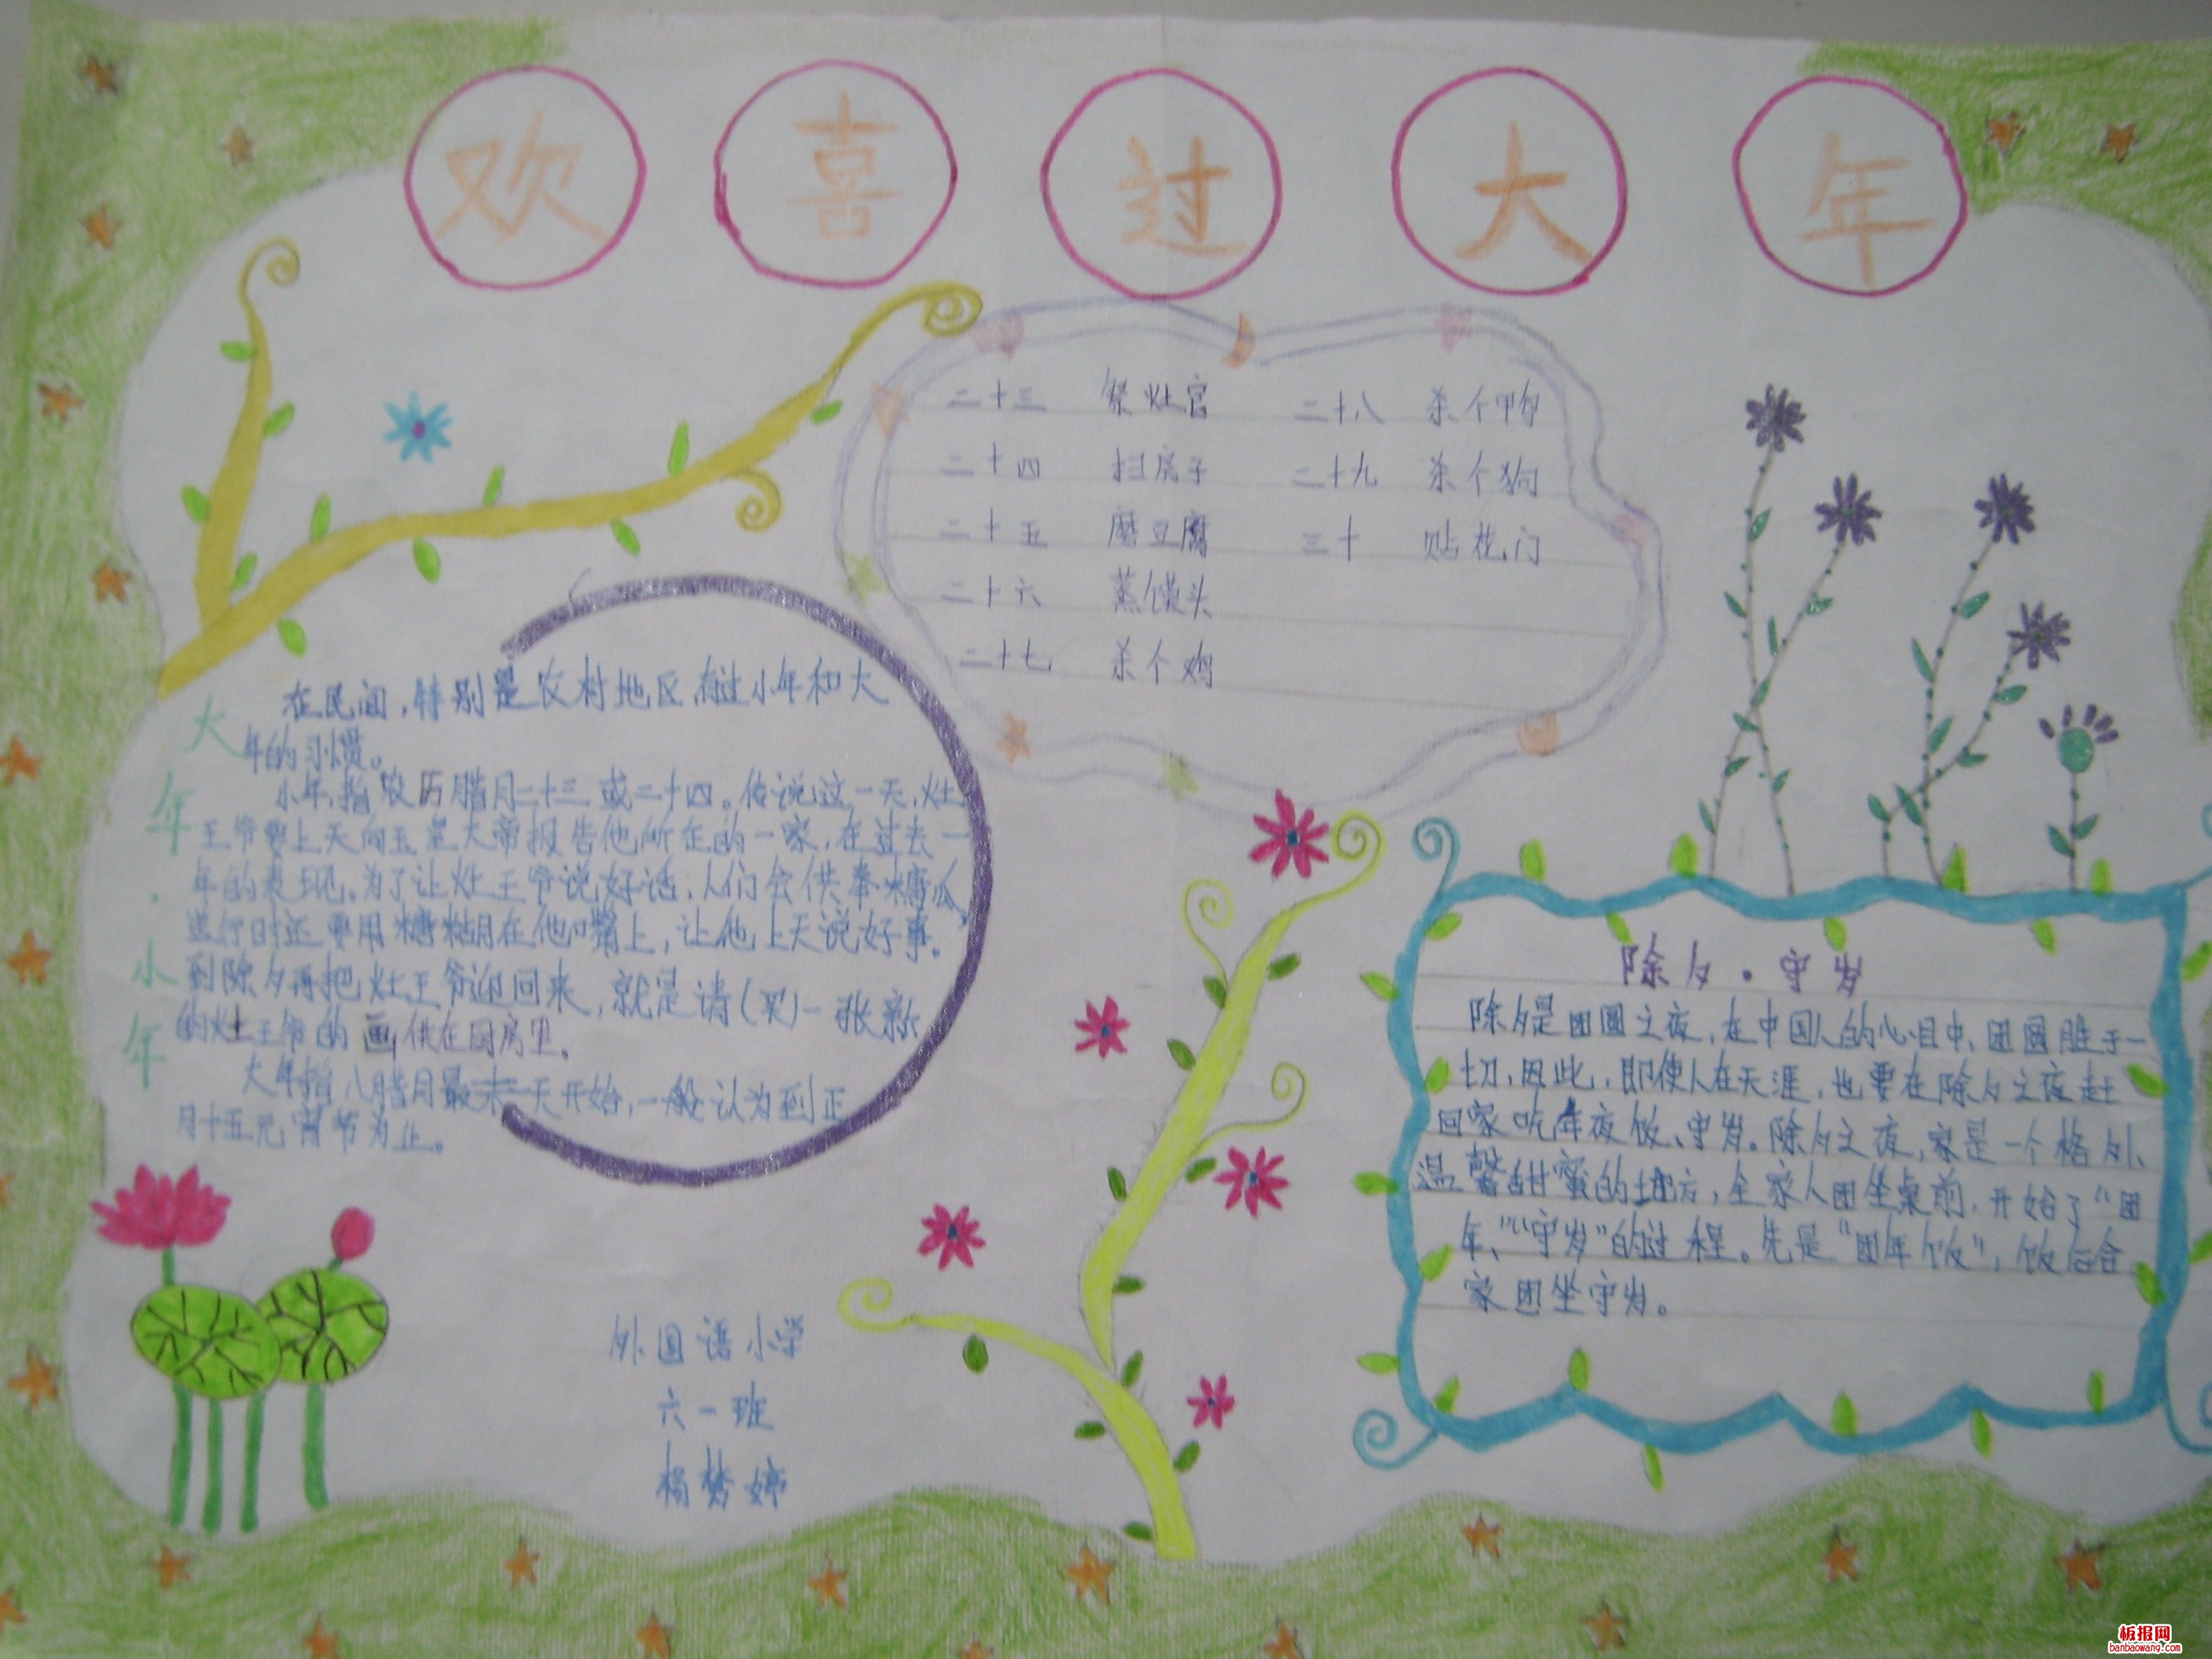 欢喜过大年
二十三 祭灶官 二十八 杀个鸭
二十四 扫房子 二十九 杀个狗
二十五 磨豆腐 三十 贴花门
二十六 蒸馍头
二十七 杀个鸡
大年·小年
在民间,特别是农村地区,有过小年和大
年的习惯。
小年,指农历腊月二十三或二十四。传说这一天,灶
王爷要上天向玉皇大帝报告他所在的一家,在过去一
年的表现。为了让灶王爷说好话,人们会供奉糖瓜,
送行时还要用糖糊在他嘴上,让他上天说好事。
到除夕再把灶王爷迎回来,就是请(买)一张新
的灶王爷的画供在厨房里。
大年指从腊月最末一天开始,一般认为到正
月十五元宵节为止。
除夕·守岁
除夕是团圆之夜,在中国人的心目中,团圆胜于一
切,因此,即使人在天涯,也要在除夕之夜赶
回家吃年夜饭、守岁。除夕之夜,家是一个格外、
温馨甜蜜的地方,全家人团坐桌前,开始了“团
年”、“守岁”的过程。先是“团年饭”,饭后合
家团坐守岁。
外国语小学
六一班
杨梦婷
板报网
banbaowang.com